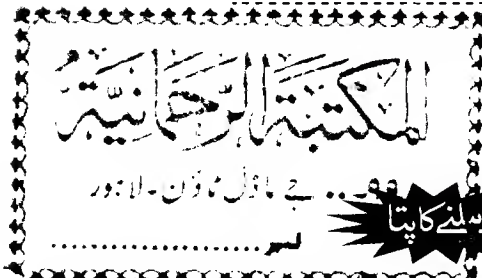 المکتبۃ الرحمانیۃ
۹۹... جے ماڈل ٹاؤن۔ لاہور
ملنے کا پتا
نمبر......................